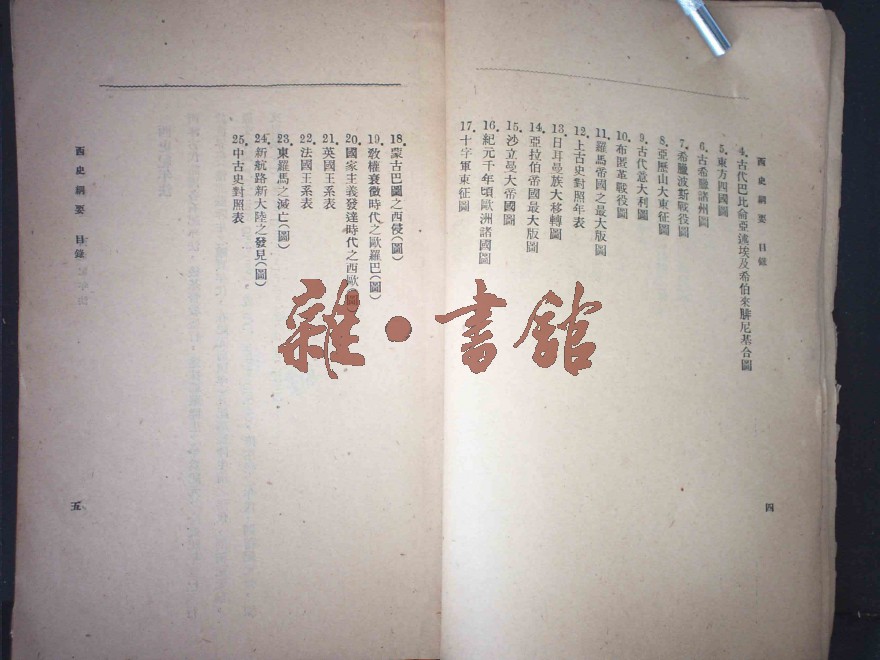 西史綱要 目錄
4. 古代巴比侖亞述埃及希伯來腓尼基合圖
5. 東方四國圖
6. 古希臘諸州圖
7. 希臘波斯戰役圖
8. 亞歷山大東征圖
9. 古代意大利圖
10. 布匿革戰役圖
11. 羅馬帝國之最大版圖
12. 上古史對照年表
13. 日耳曼族大移轉圖
14. 亞拉伯帝國最大版圖
15. 沙立曼大帝國圖
16. 紀元千年頃歐洲諸國圖
17. 十字軍東征圖
四
18. 蒙古巴圖之西侵(圖)
19. 教權衰微時代之歐羅巴(圖)
20. 國家主義發達時代之西歐(圖)
21. 英國王系表
22. 法國王系表
23. 東羅馬之滅亡(圖)
24. 新航路新大陸之發見(圖)
25. 中古史對照表
西史綱要 目錄
五
雜·書館